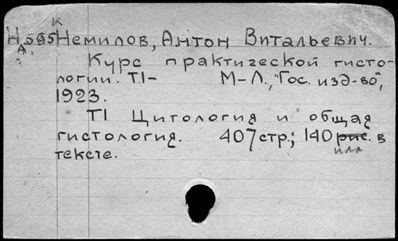 К
Н 595 Немилов, Антон Витальевич.
А.
Курс практической гисто-
логии. TI- М-Л., "Гос. изд-во",
1923.
TI Цитология и общая
гистология. 407 стр.; 140 рис. в
илл
тексте.